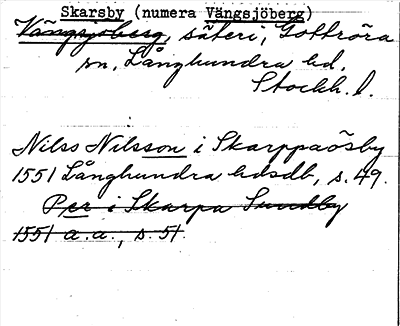 Skarsby (numera Vängsjöberg)
Vängsjöberg, säteri, Gottröra
sn, Långhundra hd,
Stockh. l.
Nilss Nilsson i Skarppaösby
1551 Långhundra hdsdb, s. 49.
Per i Skarpa Sundby
1551 a.a., s. 51.